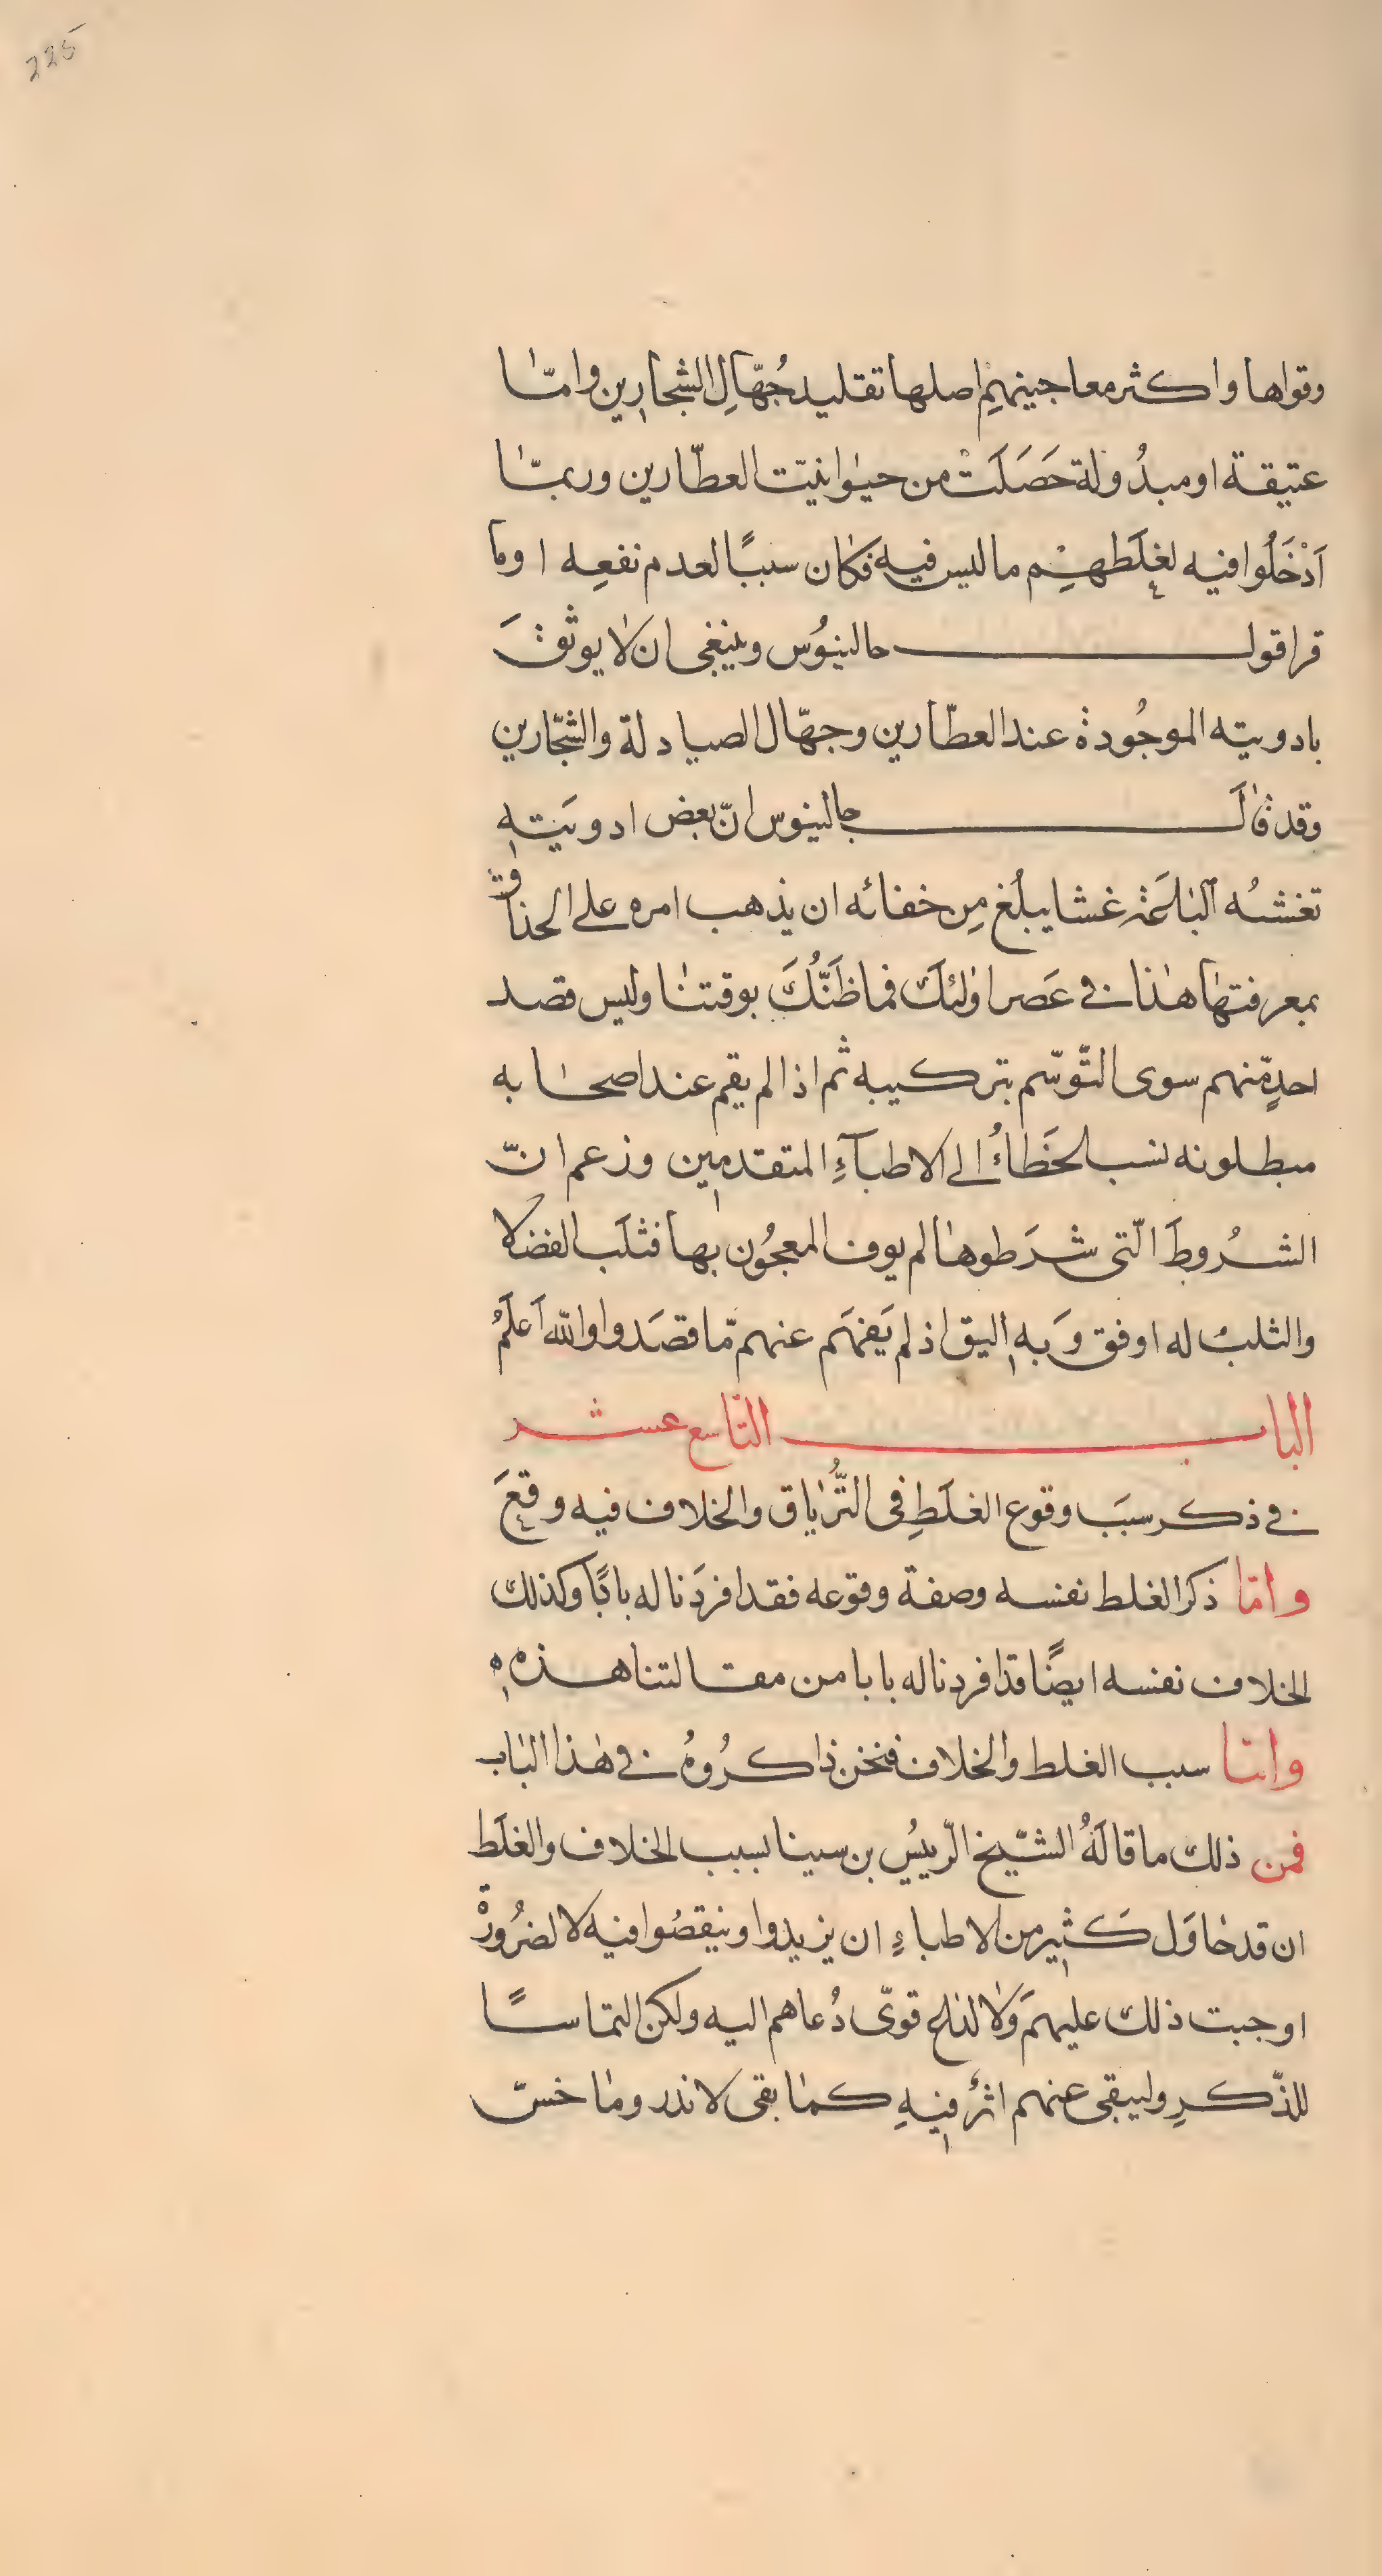 225
وقواها واكثر معاجينهمِ اصلها تقليد جُهّالِ الشجارين وامّا
عتيقة او مبدُولة حَصَلَتْ من حيوانيّت العطّارين وربّما
اَدْخَلُوا فيه لغلَطهِم ما ليس فيه فكان سببًا لعدم نفعِه او ما
قرا قول جالينوُس وينبغى ان لا يوثقَ
بادويته الموجُودة عند العطّارين وجهّال الصيادلة والشجّارين
وقد قالَ جالينوس انّ بعض ادويَته
تغشه الباعَة غشا يبلُغ مِن خفائه ان يذهب امره على الحذاق
بمعرفتها هذا فى عَصر اولئكَ فما ظَنُّكَ بوقتنا وليس قصد
احدٍ منهم سوى التّوسّم بتركيبه ثم اذا لم يقم عند اصحابه
مبطلونه نسب الخَطاءُ الى الاطبآءِ المتقدمين وزعم انّ
الشرُوطَ الّتى شرَطوها لم يوف المعجُون بها فثلَب الفضلا
والثلبُ له اوفق وَبه اليق اذ لم يَفهَم عنهم مّا قصَدوا والله اَعلَمُ
الباب التاسع عشر
فى ذكر سببَ وقوع الغلَطِ فى التُّرياق والخلاف فيه وقعَ
وامّا ذكر الغلط نفسه وصفة وقوعه فقد افردَنا له بابًا وكذلك
الخلاف نفسه ايضًا قد افردنا له بابا من مقالتنا هذه
وامّا سبب الغلط والخلاف فنحن ذاكرُوهُ فى هذا الباب
فمن ذلك ما قالَهُ الشّيخ الرّييُس بن سينا بسبب الخلاف والغلَط
ان قد حاوَل كَثير من الاطباءِ ان يزيدوا وينقصُوا فيه لا لضرُورة
اوجبت ذلك عليهمَ ولا قوّى دُعاهم اليه ولكن التماسًا
للذّكرِ وليبقى عنهم اثرٌ فيهِ كما بقى لاندر وماخسّ